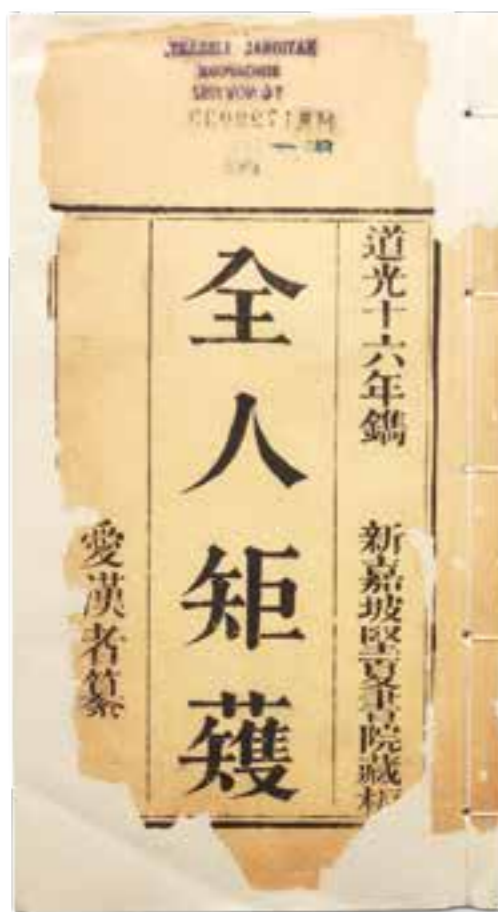 道光十六年鐫 新嘉坡堅夏書院藏板
全人矩矱
愛漢者纂